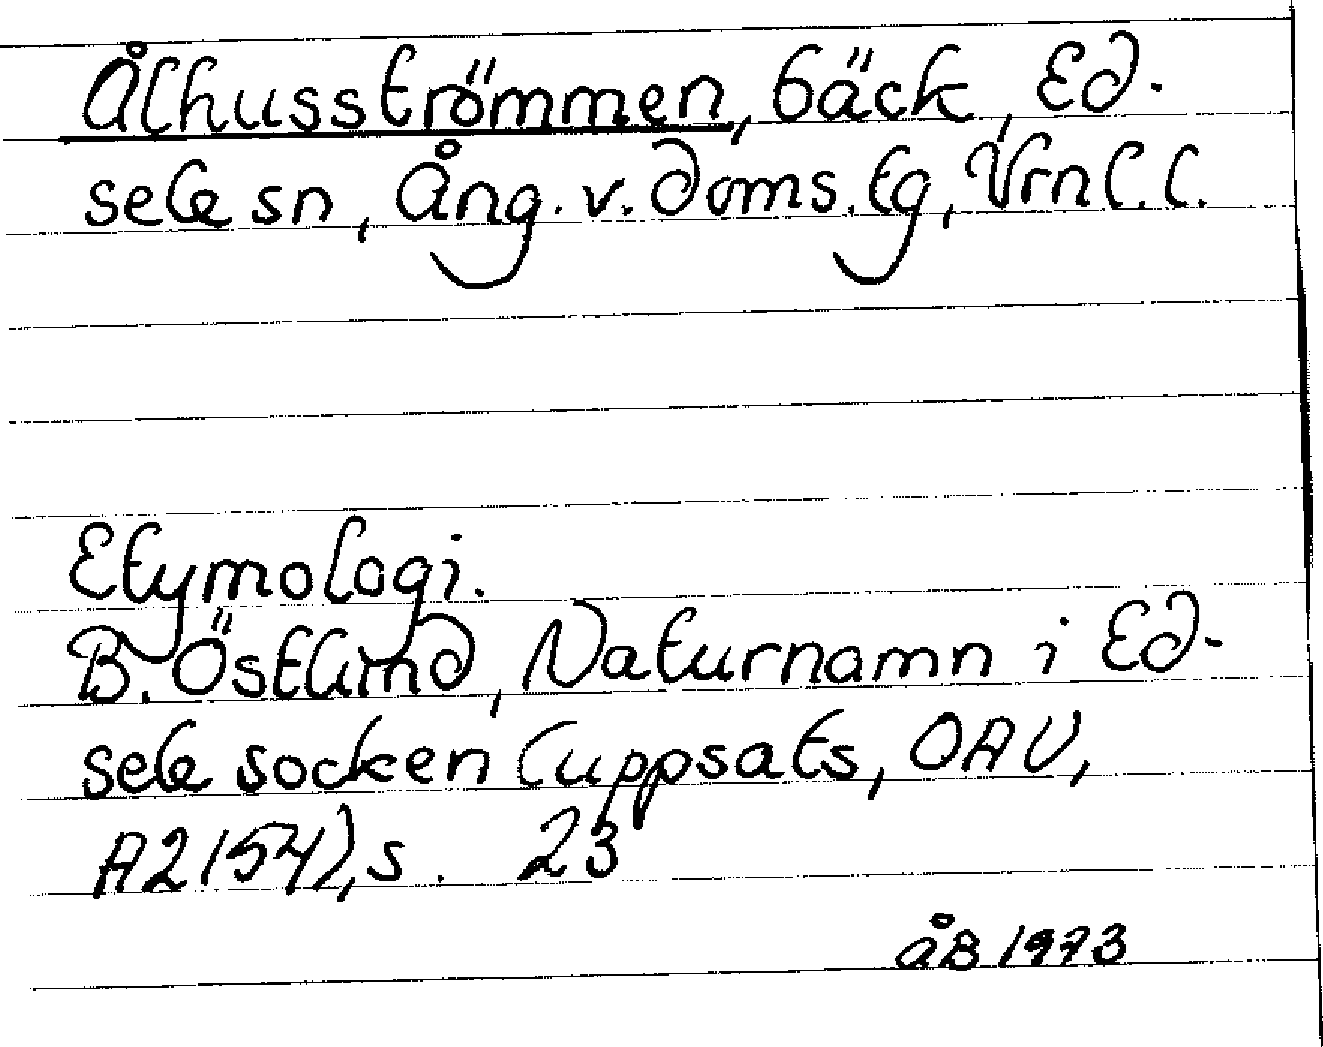 Ålhusströmmen, bäck, Ed-
sele sn, Ång. v. doms. tg, Vrnl. l.
Etymologi.
B. Östlund, Naturnamn i Ed-
sele socken (uppsats, OAU,
A2154), s. 23
åB 1973